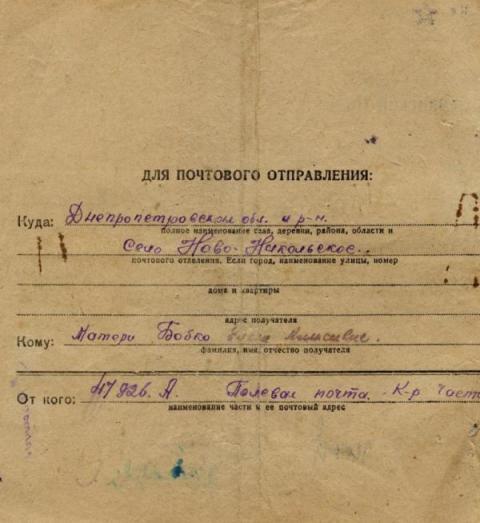 ДЛЯ ПОЧТОВОГО ОТПРАВЛЕНИЯ:
Куда: Днепропетровская обл. и р-н.
полное наименование села, деревни, района, области и
Село Ново-Никольское.
почтового отделения. Если город, наименование улицы, номер
дома и квартиры
адрес получателя
Кому: Матери Бобко
фамилия, имя, отчество получателя
От кого: 47926. А. Полевая почта. К-р част
наименование части и ее почтовый адрес